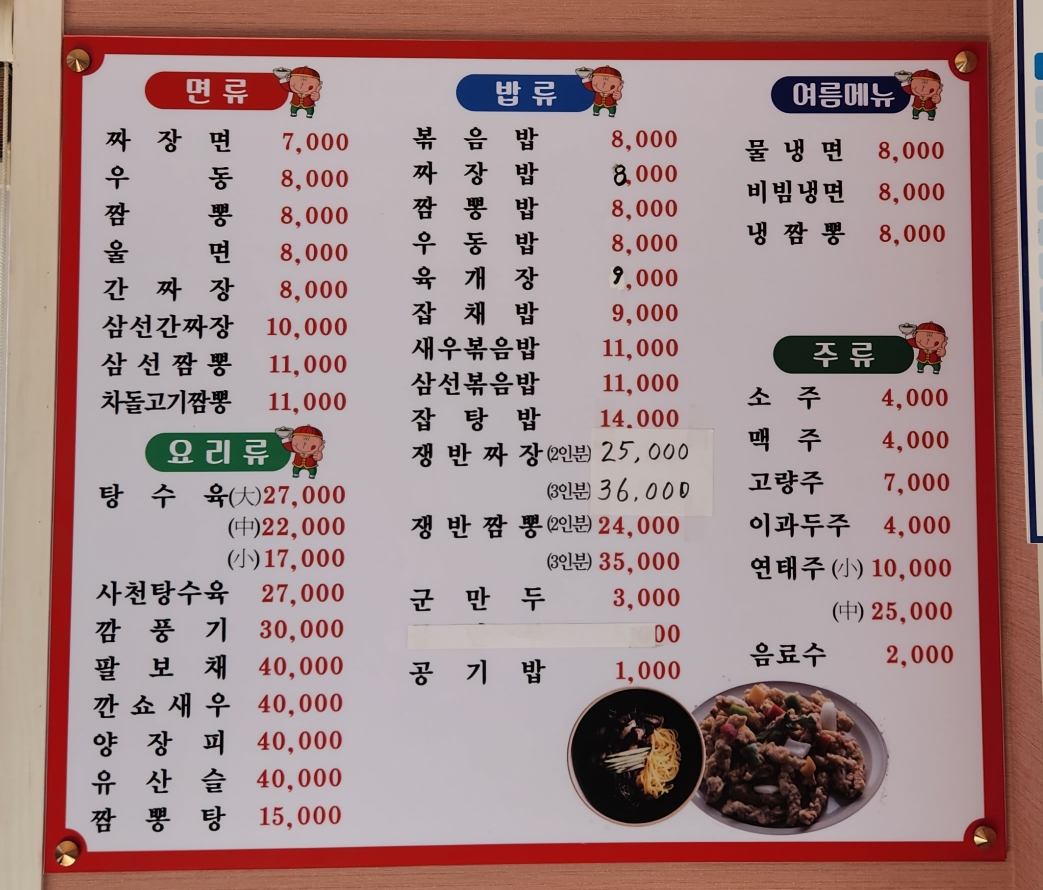 면류
짜장면 7,000
우동 8,000
짬뽕 8,000
울면 8,000
간짜장 8,000
삼선간짜장 10,000
삼선짬뽕 11,000
차돌고기짬뽕 11,000
요리류
탕수육(大) 27,000
(中) 22,000
(小) 17,000
사천탕수육 27,000
깜풍기 30,000
팔보채 40,000
깐쇼새우 40,000
양장피 40,000
유산슬 40,000
짬뽕탕 15,000
밥류
볶음밥 8,000
짜장밥 8,000
짬뽕밥 8,000
우동밥 8,000
육개장 9,000
잡채밥 9,000
새우볶음밥 11,000
삼선볶음밥 11,000
잡탕밥 14,000
쟁반짜장(2인분) 25,000
(3인분) 36,000
쟁반짬뽕(2인분) 24,000
(3인분) 35,000
군만두 3,000
공기밥 1,000
여름메뉴
물냉면 8,000
비빔냉면 8,000
냉짬뽕 8,000
주류
소주 4,000
맥주 4,000
고량주 7,000
이과두주 4,000
연태주(小) 10,000
(中) 25,000
음료수 2,000